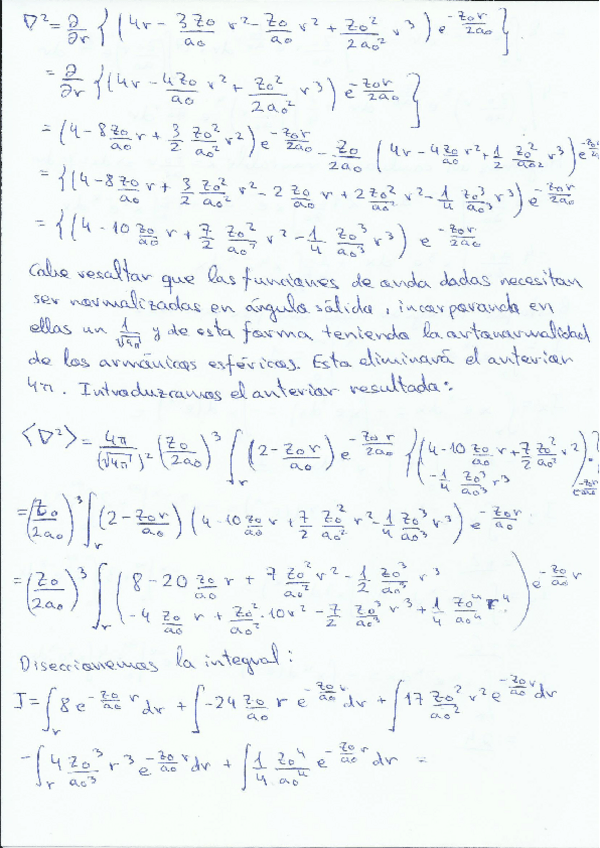 ∇² = ∂/∂r { (4r - 3Z₀/a₀ r² - Z₀/a₀ r² + Z₀²/2a₀² r³) e^(-Z₀r/2a₀) }
= ∂/∂r { (4r - 4Z₀/a₀ r² + Z₀²/2a₀² r³) e^(-Z₀r/2a₀) }
= (4 - 8Z₀/a₀ r + 3/2 Z₀²/a₀² r²) e^(-Z₀r/2a₀) - Z₀/2a₀ (4r - 4Z₀/a₀ r² + 1/2 Z₀²/a₀² r³) e^(-Z₀r/2a₀)
= {(4 - 8Z₀/a₀ r + 3/2 Z₀²/a₀² r² - 2 Z₀/a₀ r + 2 Z₀²/a₀² r² - 1/4 Z₀³/a₀³ r³) e^(-Z₀r/2a₀)
= {(4 - 10 Z₀/a₀ r + 7/2 Z₀²/a₀² r² - 1/4 Z₀³/a₀³ r³) e^(-Z₀r/2a₀)
Cabe resaltar que las funciones de onda dadas necesitan
ser normalizadas en ángulo sólido, incorporando en
ellas un 1/√4π y de esta forma teniendo la ortonormalidad
de los armónicos esféricos. Esto eliminará el anterior
4π. Introduzcamos el anterior resultado:
⟨∇²⟩ = 4π/(√4π)² (Z₀/2a₀)³ ∫r (2 - Z₀r/a₀) e^(-Z₀r/2a₀) {(4 - 10 Z₀/a₀ r + 7/2 Z₀²/a₀² r² - 1/4 Z₀³/a₀³ r³)} · e^(-Z₀r/2a₀)
= (Z₀/2a₀)³ ∫r (2 - Z₀r/a₀) (4 - 10 Z₀/a₀ r + 7/2 Z₀²/a₀² r² - 1/4 Z₀³/a₀³ r³) e^(-Z₀r/a₀)
= (Z₀/2a₀)³ ∫r (8 - 20 Z₀/a₀ r + 7 Z₀²/a₀² r² - 1/2 Z₀³/a₀³ r³
- 4 Z₀/a₀ r + Z₀²/a₀² · 10r² - 7/2 Z₀³/a₀³ r³ + 1/4 Z₀⁴/a₀⁴ r⁴) e^(-Z₀/a₀ r)
Diseccionemos la integral:
I = ∫r 8 e^(-Z₀/a₀ r) dr + ∫ -24 Z₀/a₀ r e^(-Z₀/a₀ r) dr + ∫ 17 Z₀²/a₀² r² e^(-Z₀/a₀ r) dr
- ∫r 4 Z₀³/a₀³ r³ e^(-Z₀/a₀ r) dr + ∫ 1/4 Z₀⁴/a₀⁴ e^(-Z₀/a₀ r) dr =